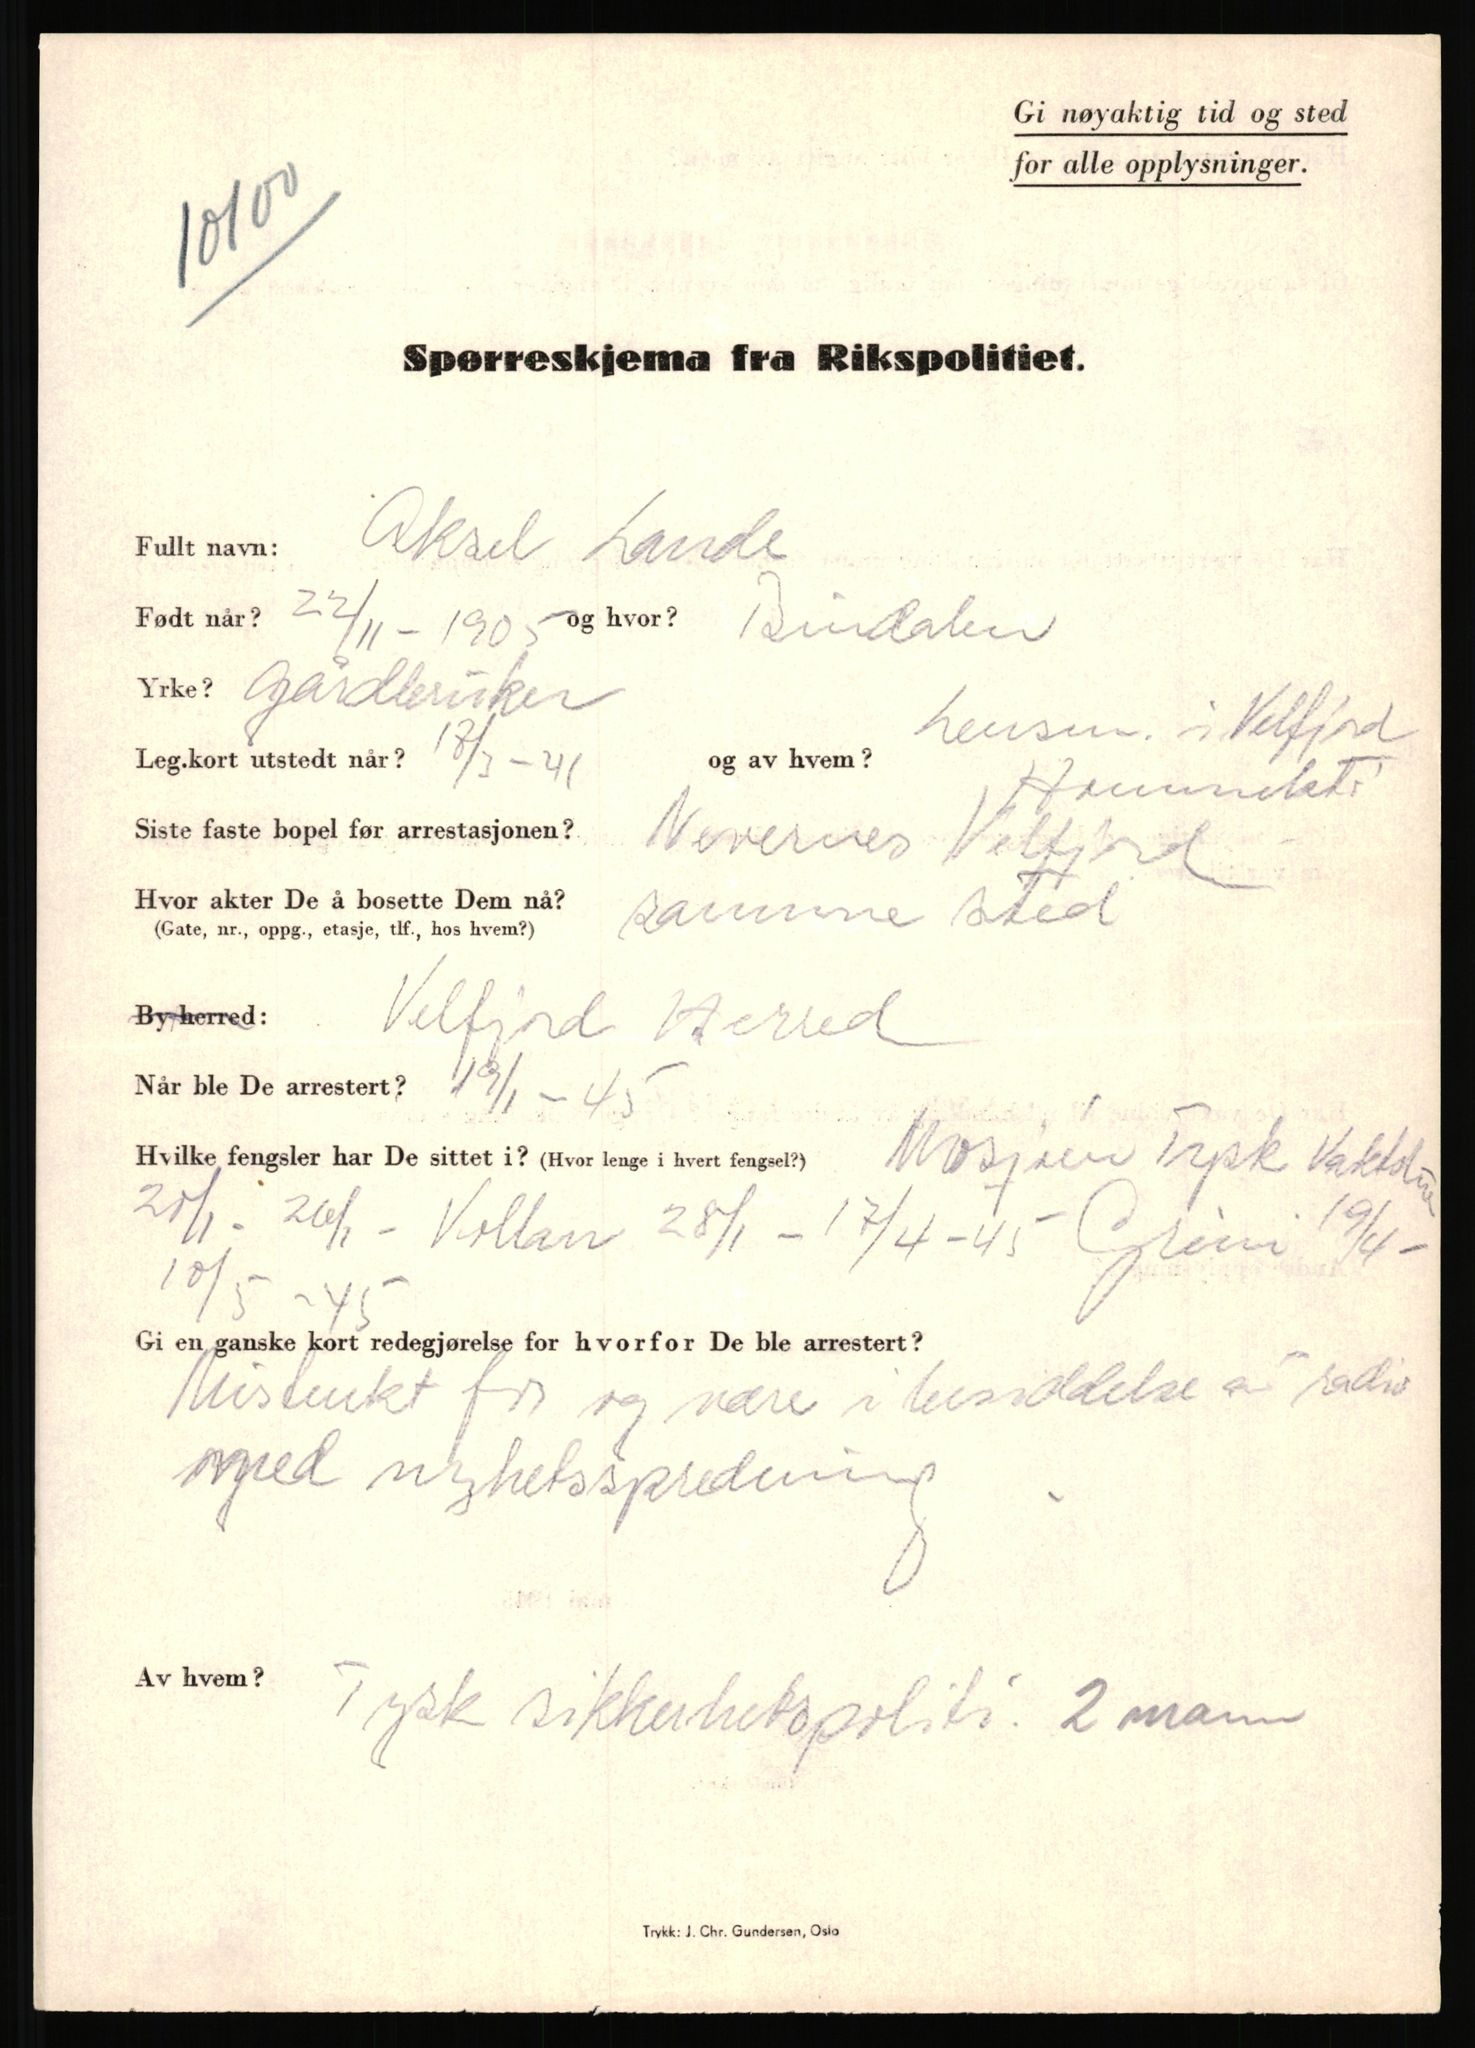 Gi nøyaktig tid og sted
for alle opplysninger.
10100
Spørreskjema fra Rikspolitiet.
Fullt navn: Aksel Lande
Født når? 22/11 - 1905 og hvor? Bindalen
Yrke? Gårdbruker
Leg.kort utstedt når? 18/3 - 41 og av hvem? Lensm. i Velfjord
Hommelstø
Siste faste bopel før arrestasjonen? Nevernes Velfjord
Hvor akter De å bosette Dem nå? samme sted
(Gate, nr., oppg., etasje, tlf., hos hvem?)
By-herred: Velfjord Herred
Når ble De arrestert? 19/1 - 45
Hvilke fengsler har De sittet i? (Hvor lenge i hvert fengsel?) Mosjøen Tysk Vaktstue
20/1 - 26/1 - Vollan 28/1 - 17/4 - 45 Grini 19/4 -
10/5 - 45
Gi en ganske kort redegjørelse for hvorfor De ble arrestert?
Mistenkt for og være i besiddelse av radio
og med nyhetsspredning
Av hvem? Tysk sikkerhetspoliti. 2 mann
Trykk: J. Chr. Gundersen, Oslo